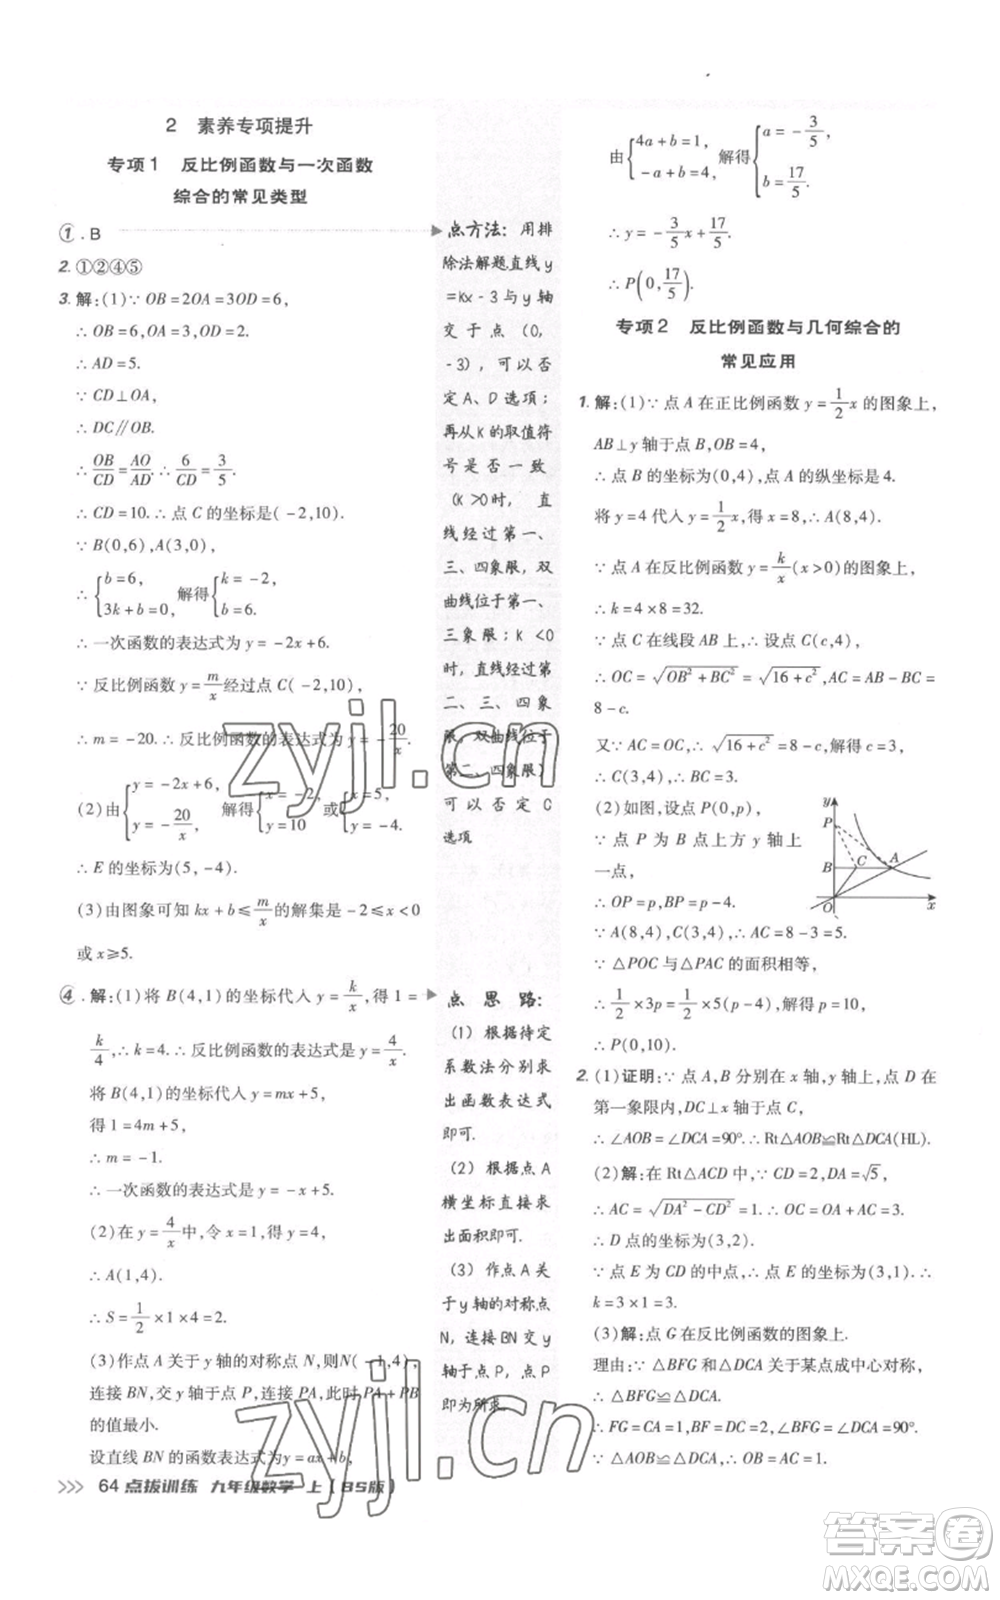 2 素养专项提升
专项1 反比例函数与一次函数
综合的常见类型
① . B
2. ①②④⑤
3. 解:(1)∵OB=2OA=3OD=6,
∴OB=6,OA=3,OD=2.
∴AD=5.
∵CD⊥OA,
∴DC∥OB.
∴OB/CD=AO/AD.∴6/CD=3/5.
∴CD=10.∴点C的坐标是(-2,10).
∵B(0,6),A(3,0),
∴{b=6, 3k+b=0, 解得{k=-2, b=6.
∴一次函数的表达式为y=-2x+6.
∵反比例函数y=m/x经过点C(-2,10),
∴m=-20.∴反比例函数的表达式为y=-20/x.
(2)由{y=-2x+6, y=-20/x, 解得{x=-2, y=10 或{x=5, y=-4.
∴E的坐标为(5,-4).
(3)由图象可知kx+b≤m/x的解集是-2≤x<0
或x≥5.
④ . 解:(1)将B(4,1)的坐标代入y=k/x,得1=
k/4,∴k=4.∴反比例函数的表达式为y=4/x.
将B(4,1)的坐标代入y=mx+5,
得1=4m+5,
∴m=-1.
∴一次函数的表达式是y=-x+5.
(2)在y=4/x中,令x=1,得y=4,
∴A(1,4).
∴S=1/2×1×4=2.
(3)作点A关于y轴的对称点N,则N(-1,4),
连接BN,交y轴于点P,连接PA,此时PA+PB
的值最小.
设直线BN的函数表达式为y=ax+b,
点方法: 用排
除法解题.直线y
=Kx-3与y轴
交于点(0,
-3),可以否
定A、D选项;
再从K的取值符
号是否一致
(K>0时,直
线经过第一、
三、四象限,双
曲线位于第一、
三象限;K<0
时,直线经过第
二、三、四象
限,双曲线位于
第二、四象限)
可以否定C
选项
点思路:
(1)根据待定
系数法分别求
出函数表达式
即可.
(2)根据点A
横坐标直接求
出面积即可.
(3)作点A关
于y轴的对称点
N,连接BN交y
轴于点P,点P
即为所求.
由{4a+b=1, -a+b=4, 解得{a=-3/5, b=17/5.
∴y=-3/5x+17/5.
∴P(0,17/5).
专项2 反比例函数与几何综合的
常见应用
1. 解:(1)∵点A在正比例函数y=1/2x的图象上,
AB⊥y轴于点B,OB=4,
∴点B的坐标为(0,4),点A的纵坐标是4.
将y=4代入y=1/2x,得x=8,∴A(8,4).
∵点A在反比例函数y=k/x(x>0)的图象上,
∴k=4×8=32.
∵点C在线段AB上,∴设点C(c,4),
∴OC=√(OB²+BC²)=√(16+c²),AC=AB-BC=
8-c.
又∵AC=OC,∴√(16+c²)=8-c,解得c=3,
∴C(3,4),∴BC=3.
(2)如图,设点P(0,p),
∵点P为B点上方y轴上
一点,
∴OP=p,BP=p-4.
∵A(8,4),C(3,4),∴AC=8-3=5.
∵△POC与△PAC的面积相等,
∴1/2×3p=1/2×5(p-4),解得p=10,
∴P(0,10).
y
P
B
C
A
O
x
2. (1)证明:∵点A,B分别在x轴,y轴上,点D在
第一象限内,DC⊥x轴于点C,
∴∠AOB=∠DCA=90°.∴Rt△AOB≌Rt△DCA(HL).
(2)解:在Rt△ACD中,∵CD=2,DA=√5,
∴AC=√(DA²-CD²)=1,∴OC=OA+AC=3.
∴D点的坐标为(3,2).
∵点E为CD的中点,∴点E的坐标为(3,1).∴
k=3×1=3.
(3)解:点G在反比例函数的图象上.
理由:∵△BFG和△DCA关于某点成中心对称,
∴△BFG≌△DCA.
∴FG=CA=1,BF=DC=2,∠BFG=∠DCA=90°.
64 点拨训练 九年级数学 上(BS版)
zyjl.cn
zyjl.cn
答案圈